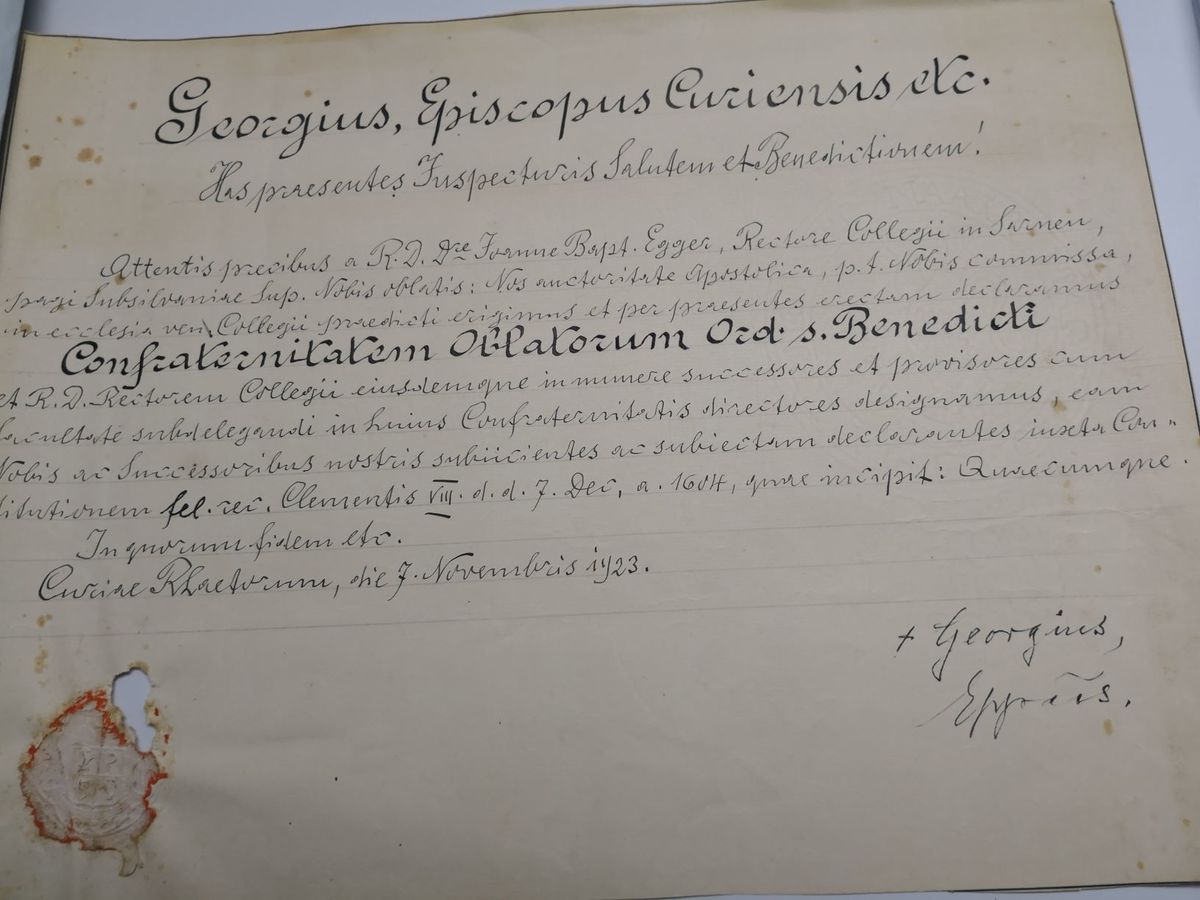 Georgius, Episcopus Curiensis etc.
Has praesentes Inspecturis Salutem et Benedictionem!
Attentis precibus a R. D. Dre Joanne Bapt. Egger, Rectore Collegii in Sarnen,
pagi Subsilvaniae Sup. Nobis oblatis: Nos auctoritate Apostolica, p. t. Nobis commissa,
in ecclesia ven. Collegii praedicti erigimus et per praesentes erectam declaramus
Confraternitatem Oblatorum Ord. s. Benedicti
et R. D. Rectorem Collegii eiusdemque in munere successores et provisores cum
facultate subdelegandi in huius Confraternitatis directores designamus, eam
Nobis ac Successoribus nostris subiicientes ac subiectam declarantes iuxta Con-
titutionem fel. rec. Clementis VIII. d. d. 7. Dec. a. 1604, quae incipit: Quaecumque.
In quorum fidem etc.
Curiae Rhaetorum, die 7. Novembris 1923.
+ Georgius,
Eppūs.